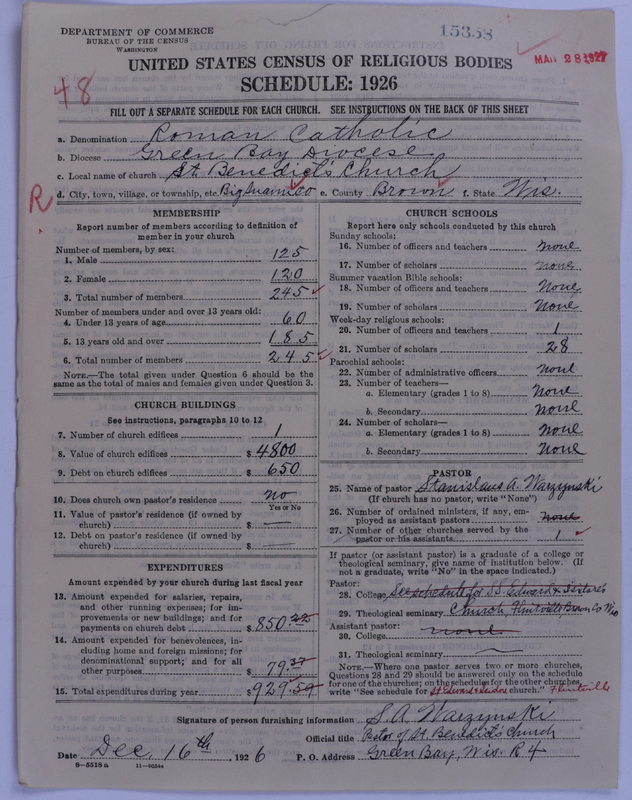 DEPARTMENT OF COMMERCE
BUREAU OF THE CENSUS
WASHINGTON
15358
MAR 28 1927
UNITED STATES CENSUS OF RELIGIOUS BODIES
SCHEDULE: 1926
48
FILL OUT A SEPARATE SCHEDULE FOR EACH CHURCH. SEE INSTRUCTIONS ON THE BACK OF THIS SHEET
a. Denomination Roman Catholic
b. Diocese Green Bay Diocese
c. Local name of church St. Benedict's Church
R
d. City, town, village, or township, etc. Big Suamico e. County Brown f. State Wis.
MEMBERSHIP
Report number of members according to definition of
member in your church
Number of members, by sex:
1. Male 125
2. Female 120
3. Total number of members 245
Number of members under and over 13 years old:
4. Under 13 years of age 60
5. 13 years old and over 185
6. Total number of members 245
NOTE.—The total given under Question 6 should be the
same as the total of males and females given under Question 3.
CHURCH BUILDINGS
See instructions, paragraphs 10 to 12
7. Number of church edifices 1
8. Value of church edifices $ 4800
9. Debt on church edifices $ 650
10. Does church own pastor's residence no
Yes or No
11. Value of pastor's residence (if owned by
church) $ —
12. Debt on pastor's residence (if owned by
church) $ —
EXPENDITURES
Amount expended by your church during last fiscal year
13. Amount expended for salaries, repairs,
and other running expenses; for im-
provements or new buildings; and for
payments on church debt $ 850.22
14. Amount expended for benevolences, in-
cluding home and foreign missions; for
denominational support; and for all
other purposes $ 79.37
15. Total expenditures during year $ 929.59
CHURCH SCHOOLS
Report here only schools conducted by this church
Sunday schools:
16. Number of officers and teachers none
17. Number of scholars none
Summer vacation Bible schools:
18. Number of officers and teachers None
19. Number of scholars None
Week-day religious schools:
20. Number of officers and teachers 1
21. Number of scholars 28
Parochial schools:
22. Number of administrative officers None
23. Number of teachers—
a. Elementary (grades 1 to 8) None
b. Secondary None
24. Number of scholars—
a. Elementary (grades 1 to 8) None
b. Secondary None
PASTOR
25. Name of pastor Stanislaus A. Warzynski
(If church has no pastor, write "None")
26. Number of ordained ministers, if any, em-
ployed as assistant pastors none
27. Number of other churches served by the
pastor or his assistants 1
If pastor (or assistant pastor) is a graduate of a college or
theological seminary, give name of institution below. (If
not a graduate, write "No" in the space indicated.)
Pastor:
28. College See schedule for SS. Edward & Isidore's
29. Theological seminary Church, Flintville, Brown Co Wis
Assistant pastor:
30. College none
31. Theological seminary
NOTE.—Where one pastor serves two or more churches,
Questions 28 and 29 should be answered only on the schedule
for one of the churches; on the schedules for the other churches,
write "See schedule for St. Edward & Isidor church." Flintville
Signature of person furnishing information S. A. Warzynski
Official title Pastor of St. Benedict's Church
Date Dec. 16th, 1926 P. O. Address Green Bay, Wis. R 4
8—5518 a